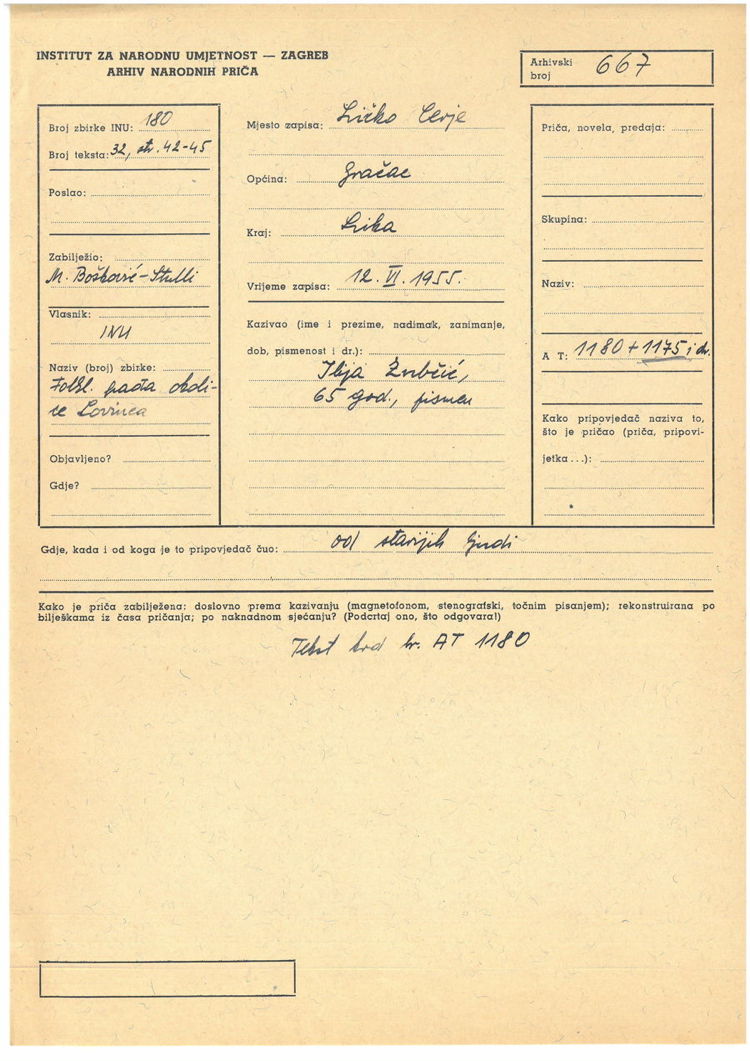 INSTITUT ZA NARODNU UMJETNOST — ZAGREB
ARHIV NARODNIH PRIČA
Arhivski
broj 667
Broj zbirke INU: 180
Broj teksta: 32, str. 42-45
Poslao:
Zabilježio:
M. Bošković-Stulli
Vlasnik:
INU
Naziv (broj) zbirke:
Folkl. građa okoli-
ce Lovinca
Objavljeno?
Gdje?
Mjesto zapisa: Ličko Cerje
Općina: Gračac
Kraj: Lika
Vrijeme zapisa: 12. VI. 1955.
Kazivao (ime i prezime, nadimak, zanimanje,
dob, pismenost i dr.):
Ilija Zubčić,
65 god., pismen
Priča, novela, predaja:
Skupina:
Naziv:
A T: 1180 + 1175 i dr.
Kako pripovjedač naziva to,
što je pričao (priča, pripovi-
jetka...):
Gdje, kada i od koga je to pripovjedač čuo: od starijih ljudi
Kako je priča zabilježena: doslovno prema kazivanju (magnetofonom, stenografski, točnim pisanjem); rekonstruirana po
bilješkama iz časa pričanja; po naknadnom sjećanju? (Podcrtaj ono, što odgovara!)
Tekst kod br. AT 1180